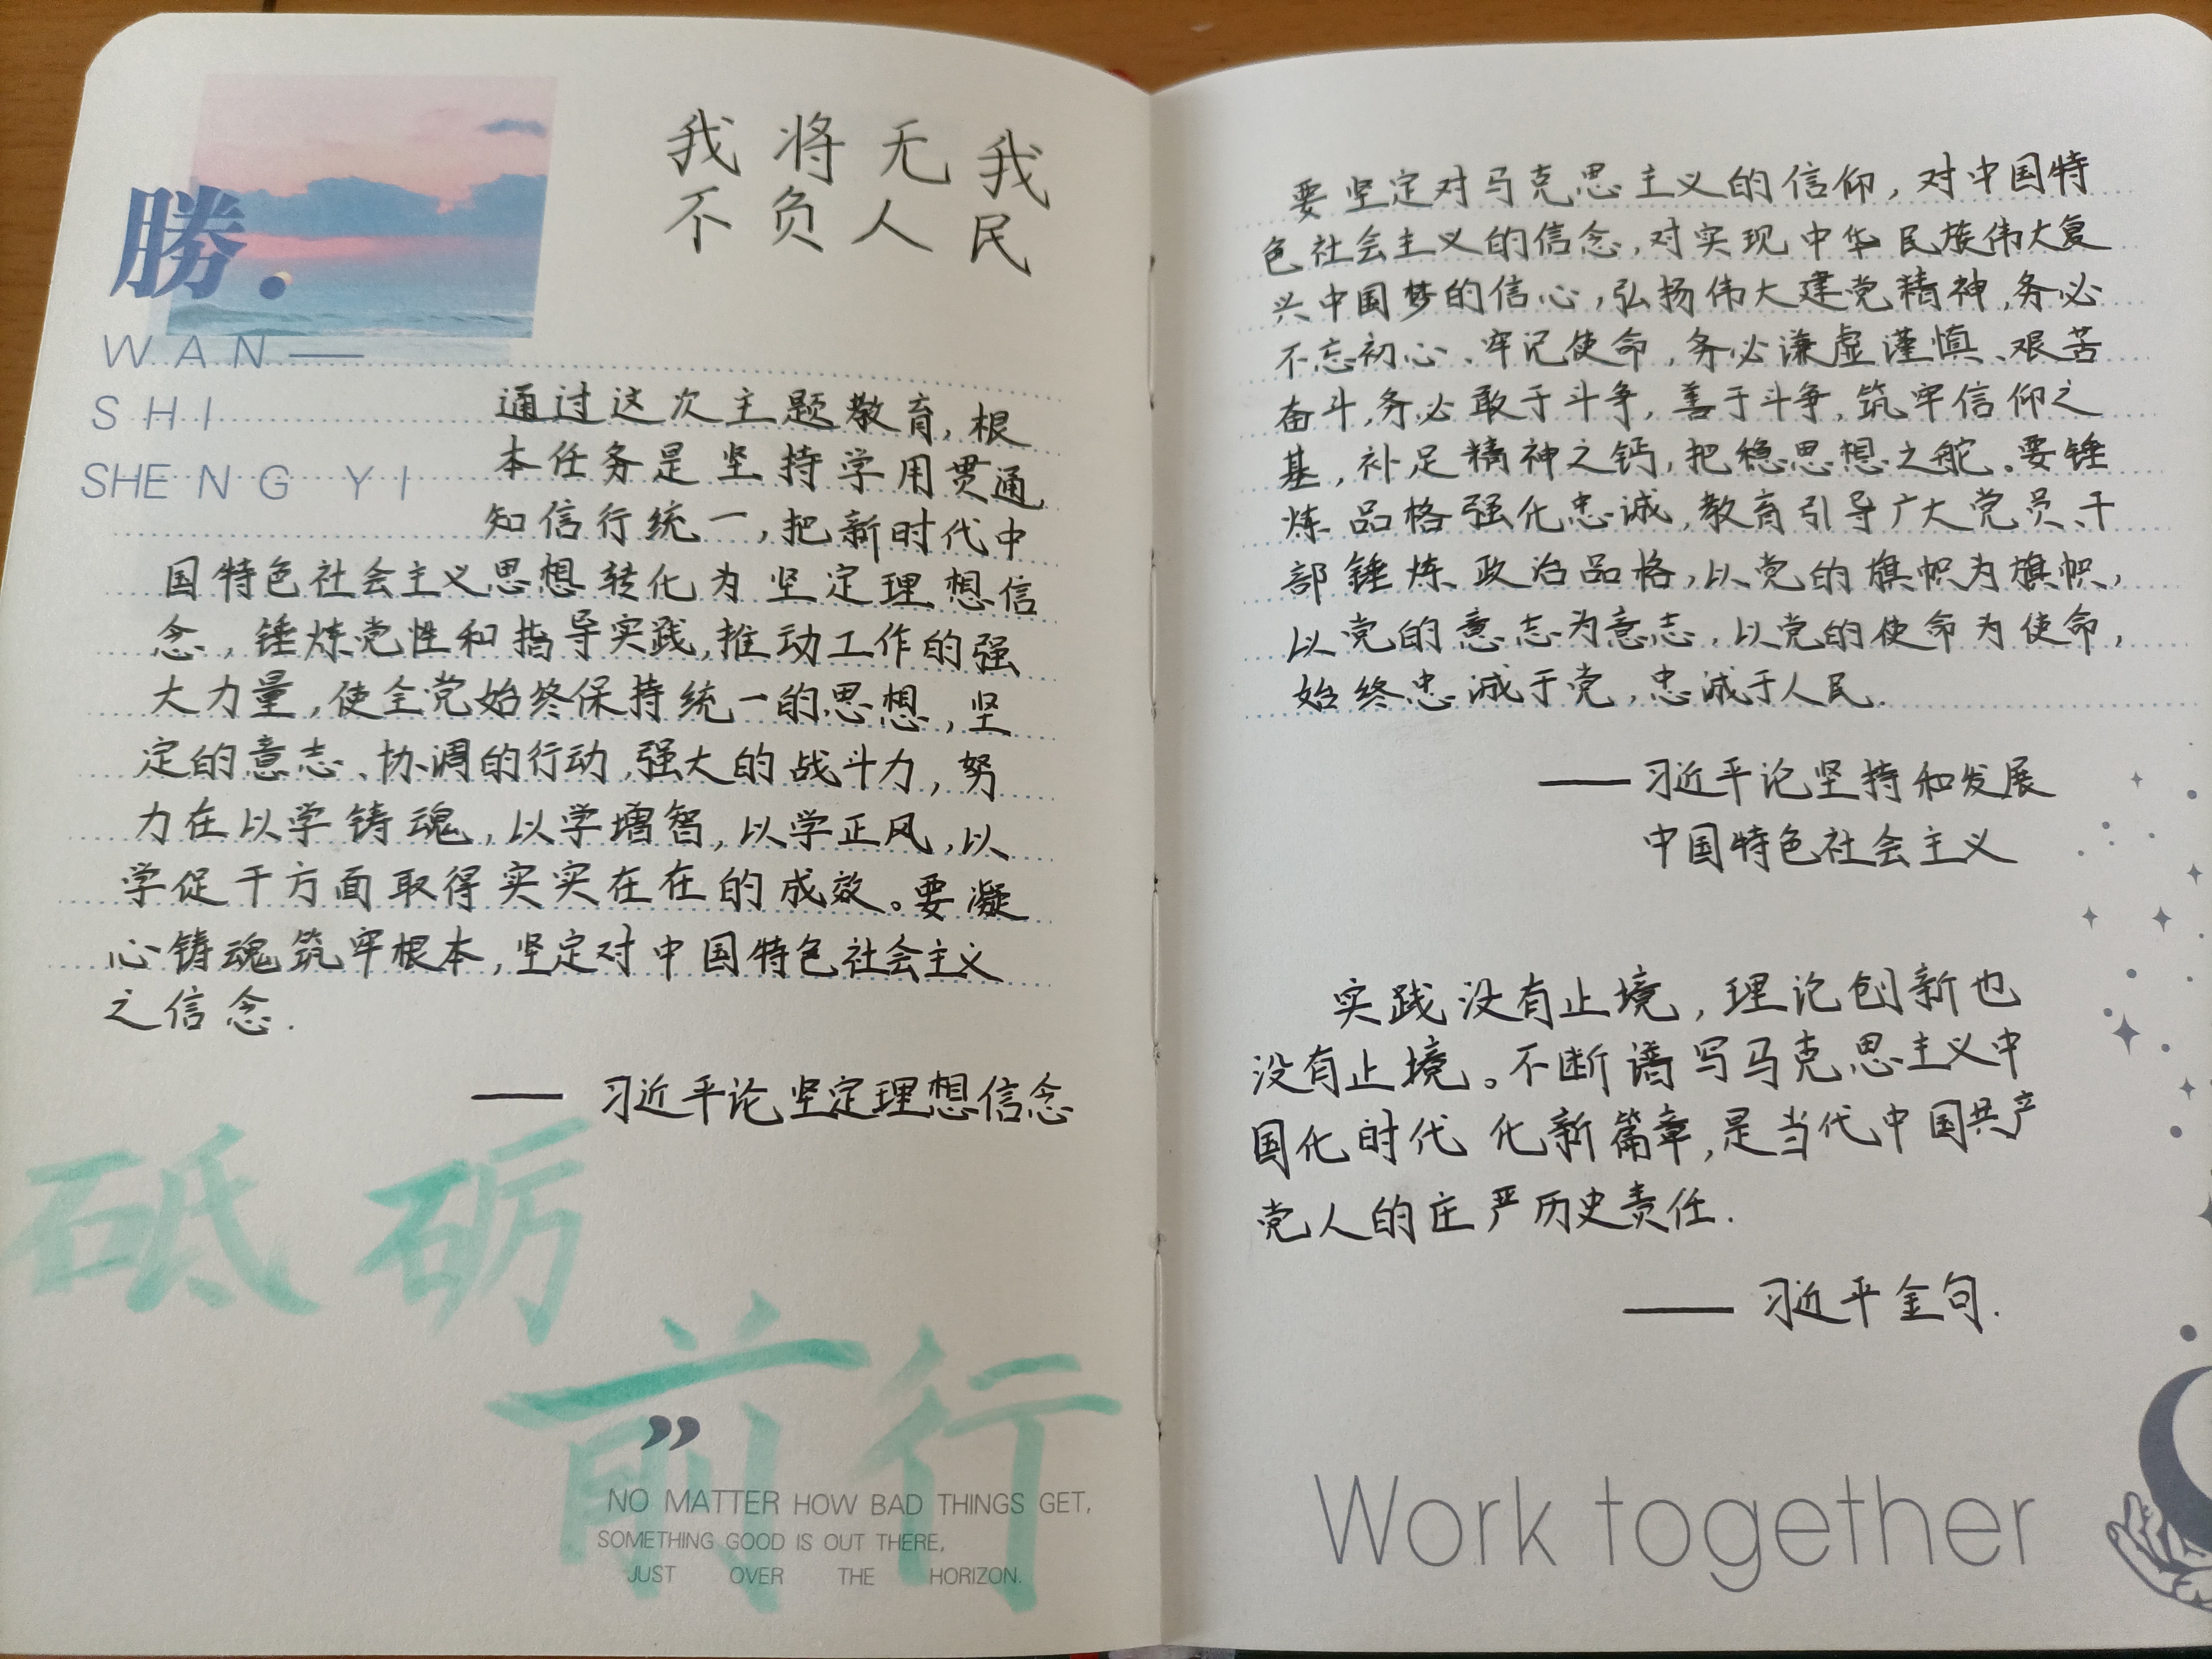 我将无我
不负人民
勝.
WAN—
SHI
SHENG YI
通过这次主题教育,根
本任务是坚持学用贯通
知信行统一,把新时代中
国特色社会主义思想转化为坚定理想信
念,锤炼党性和指导实践,推动工作的强
大力量,使全党始终保持统一的思想,坚
定的意志、协调的行动、强大的战斗力,努
力在以学铸魂,以学增智,以学正风,以
学促干方面取得实实在在的成效。要凝
心铸魂筑牢根本,坚定对中国特色社会主义
之信念.
——习近平论坚定理想信念
砥砺
前行
”
NO MATTER HOW BAD THINGS GET,
SOMETHING GOOD IS OUT THERE,
JUST OVER THE HORIZON.
要坚定对马克思主义的信仰,对中国特
色社会主义的信念,对实现中华民族伟大复
兴中国梦的信心,弘扬伟大建党精神,务必
不忘初心、牢记使命,务必谦虚谨慎、艰苦
奋斗,务必敢于斗争,善于斗争,筑牢信仰之
基,补足精神之钙,把稳思想之舵。要锤
炼品格强化忠诚,教育引导广大党员、干
部锤炼政治品格,以党的旗帜为旗帜,
以党的意志为意志,以党的使命为使命,
始终忠诚于党,忠诚于人民.
——习近平论坚持和发展
中国特色社会主义
实践没有止境,理论创新也
没有止境。不断谱写马克思主义中
国化时代 化新篇章,是当代中国共产
党人的庄严历史责任.
——习近平金句.
Work together